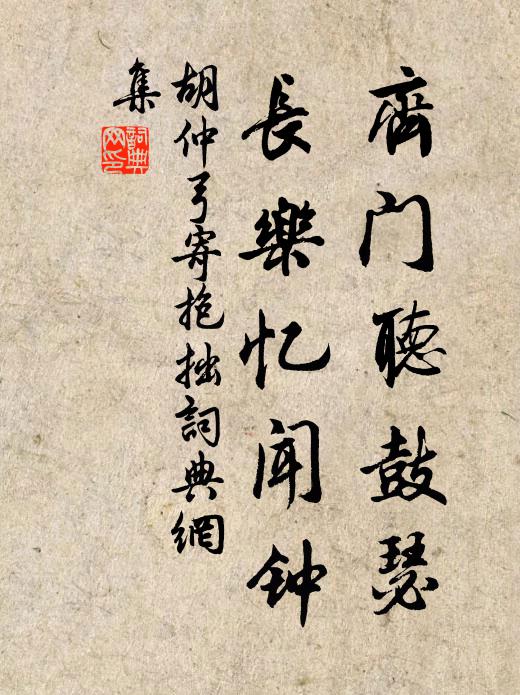 齊门聽鼓瑟
長樂忆闻钟
胡仲弓寄抱拙詞典網
集
詞典网印